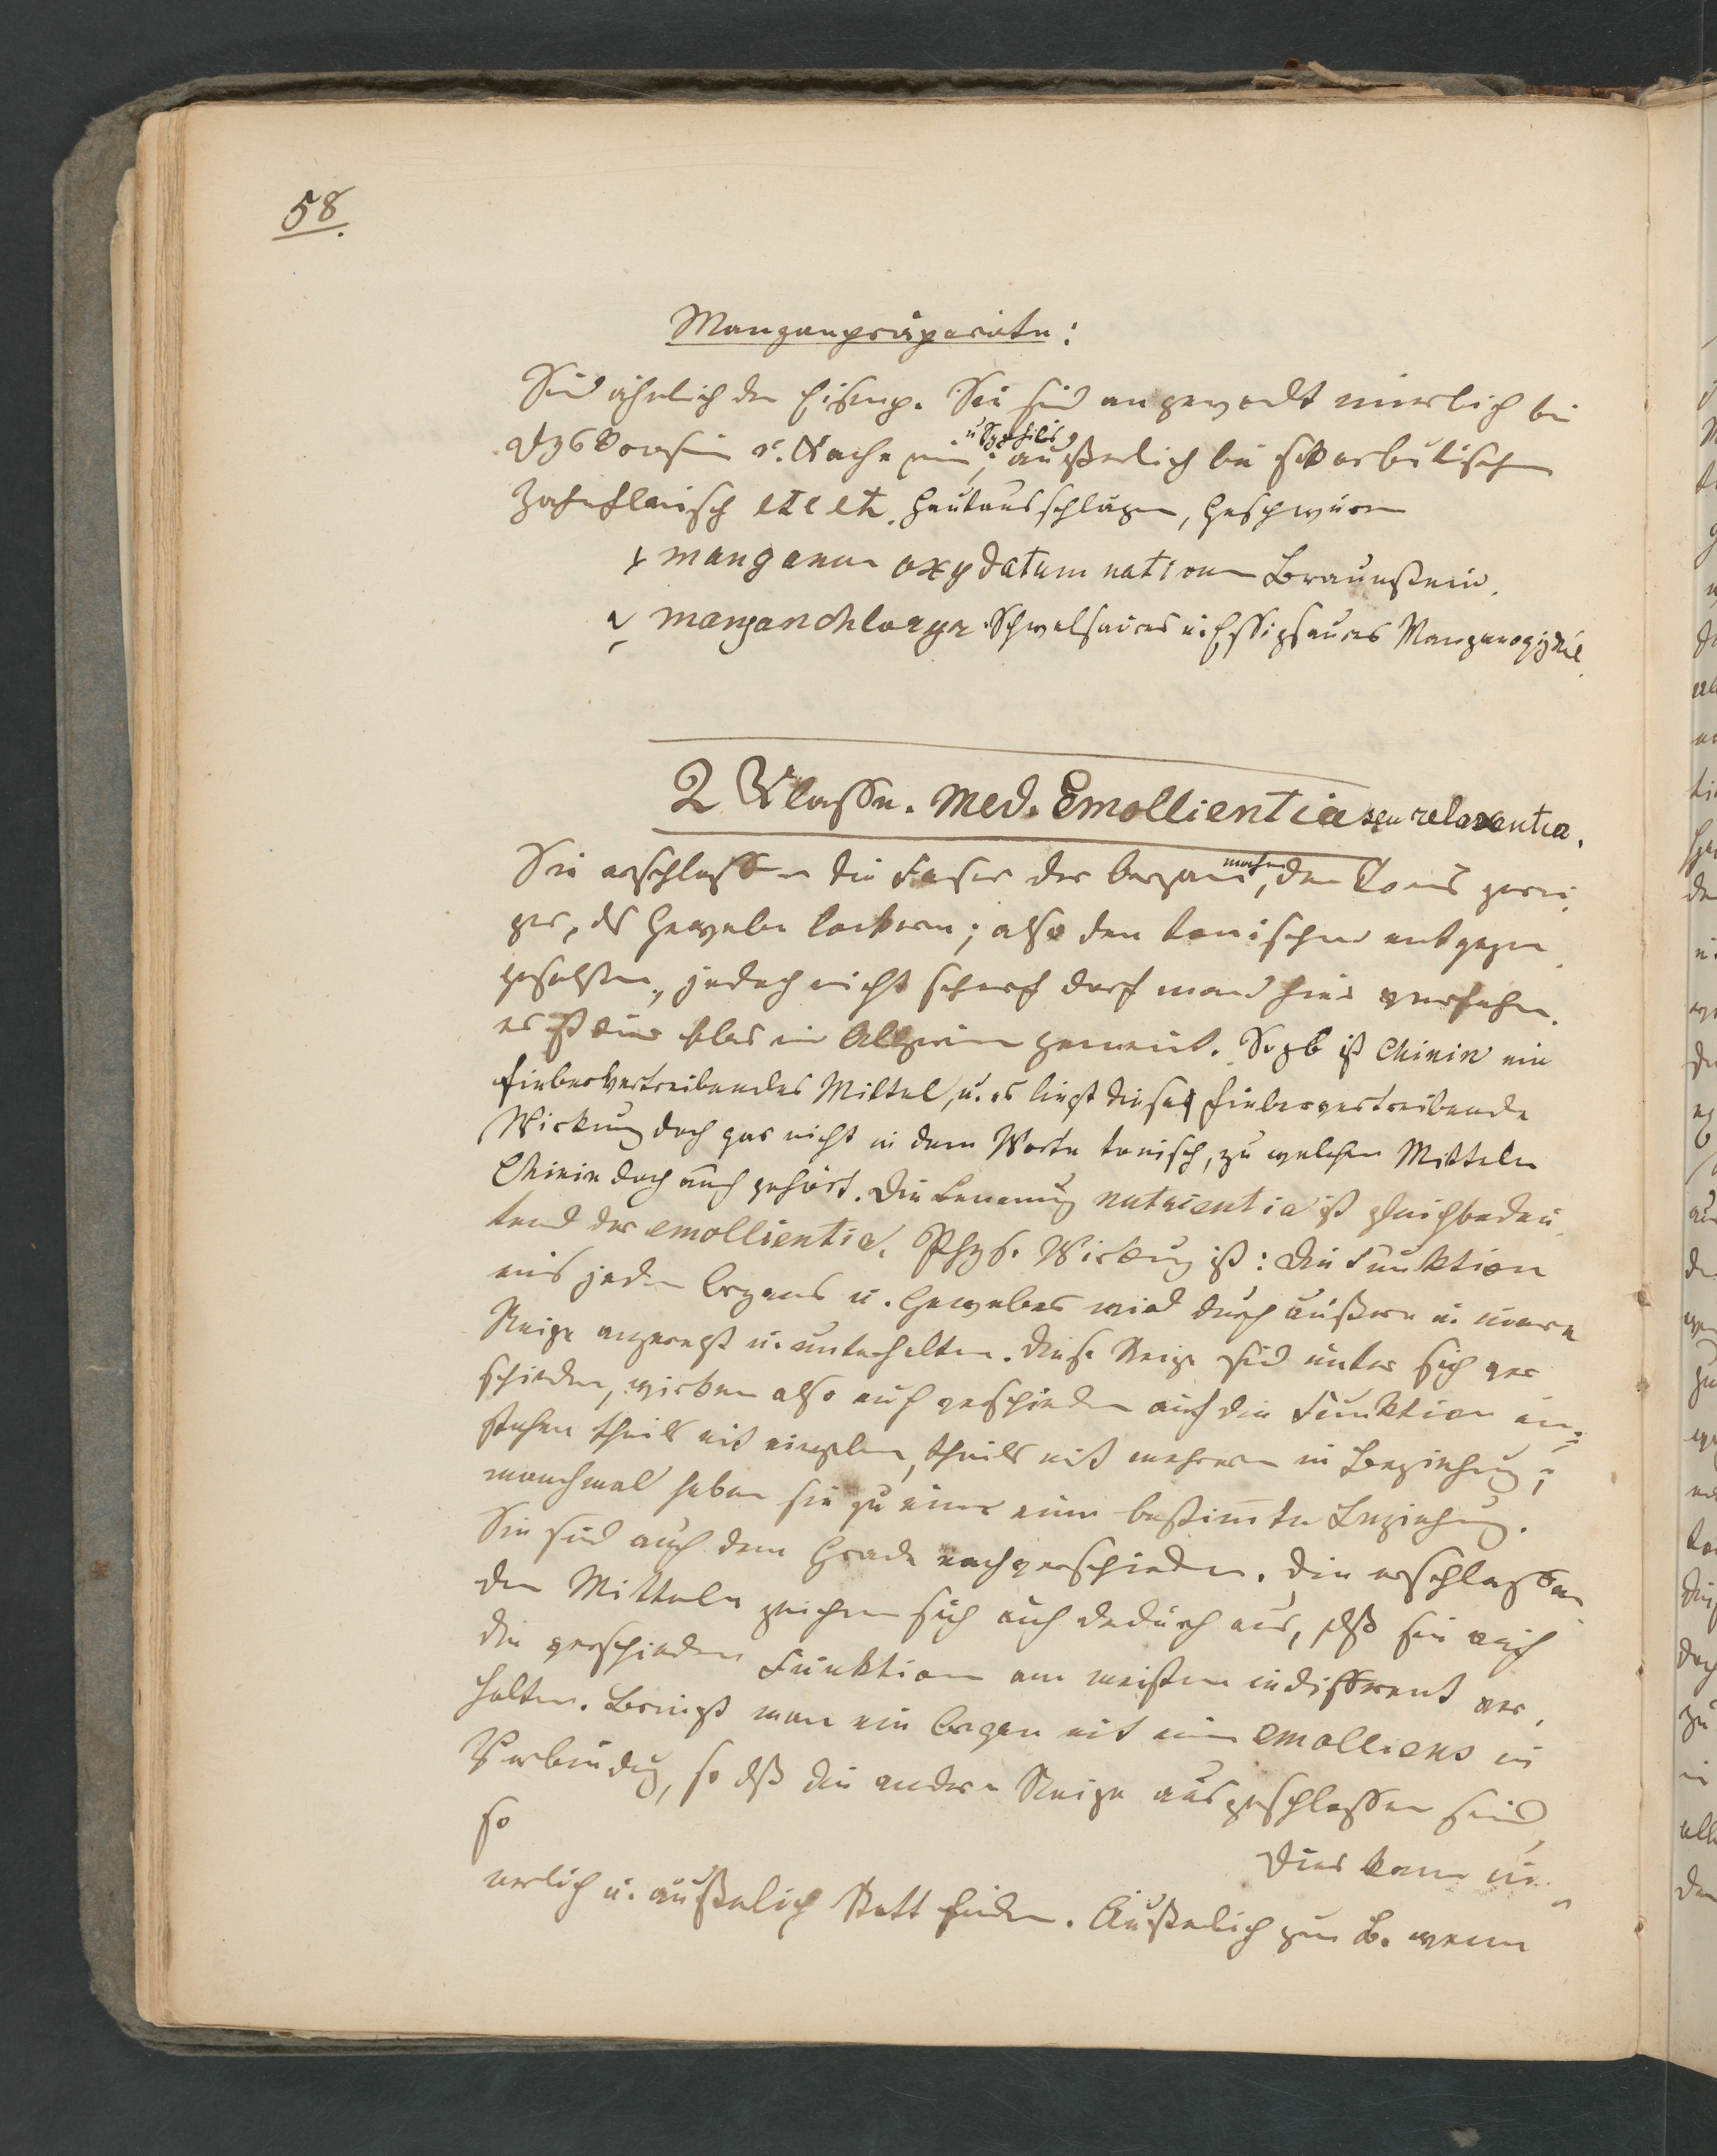 58.
Manganpräparate:
Sind ähnlich den Eisenp. Sie sind angewendt innerlich bei
Dyskrasien u. Kachexien, u Syphilis; äußerlich bei skorbutischen
Zahnfleisch etc etc. Hautausschlägen, Geschwüren
1 manganum oxydatum nativum Braunstein.
2 manganchlorür. Schwefelsaures u. Essigsaures Manganoxydul.
2 Klasse. Med. Emollientia seu relaxentia.
Sie erschlaffen die Faser der Organe, machen den Tonus gerin
ger, ds Gewebe lockern; also den tonischen entgegen
gesetzten, jedoch nicht scharf darf man hies verstehen.
es ist dies blos im Allgemein gemeint. So zb ist Chinin ein
fiebervertreibendes Mittel, u. es liegt diese fiebervertreibende
Wirkung doch gar nicht in dem Worte tonisch, zu welchen Mitteln
Chinin doch auch gehört. Die Benenung nutrientia ist gleichbedeu
tend der emollientia. Phys. Wirkung ist: Die Funktion
eines jeden Organs u. Gewebes wird durch äußere u. innere
Reize angeregt u. unterhalten. Diese Reize sind unter sich ver
schieden, wirken also auch verschieden auf die Funktion ein;
stehen theils mit einzelnen, theils mit mehreren in Beziehung;
manchmal haben sie zu einer eine bestimte Beziehung.
Sie sind auch dem Grade nach verschieden. Die erschlaffen
den Mitteln zeichnen sich auch dadurch aus, dß sie auf
die verschieden Funktionen am meisten indifferent ver
halten. Bringt man ein Organ mit einem emolliens in
Verbindung, so dß die andern Reize ausgeschlossen sind,
so
Dies kann in
nerlich u. äußerlich Statt finden. Äußerlich zum B. wenn